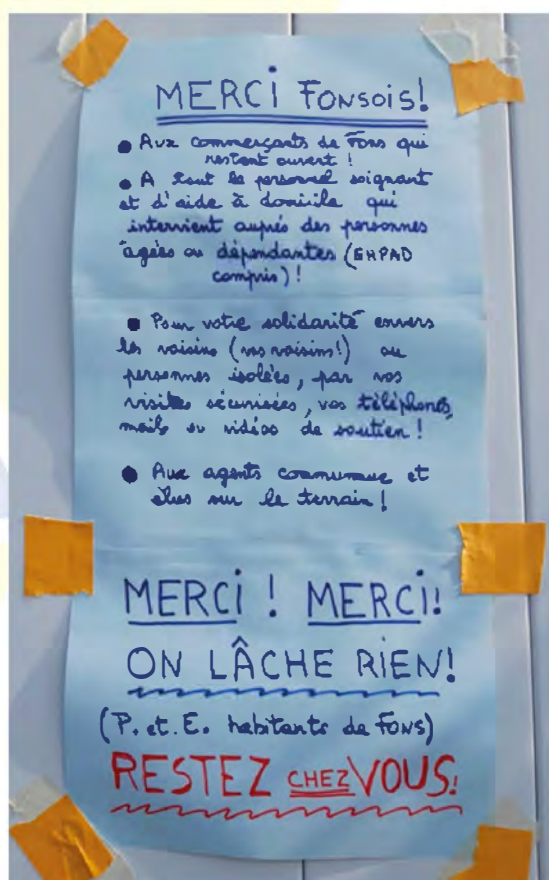 MERCI FONSOIS!
● Aux commerçants de Fons qui
restent ouvert !
● A tout le personnel soignant
et d'aide à domicile qui
intervient auprés des personnes
agées ou dépendantes (EHPAD
compris) !
● Pour votre solidarité envers
les voisins (vos voisins!) ou
personnes isolées, par vos
visites sécurisées, vos téléphones,
mails ou vidéos de soutien !
● Aux agents communaux et
élus sur le terrain !
MERCI ! MERCI!
ON LÂCHE RIEN!
(P. et. E. habitants de FONS)
RESTEZ CHEZ VOUS!